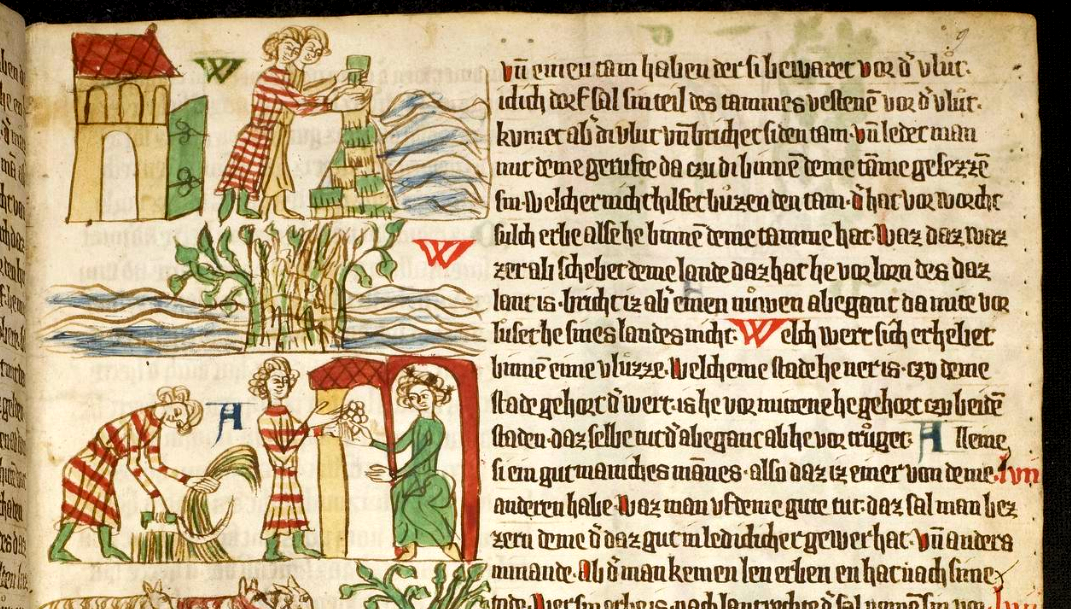 vn̄ einen tam haben der si bewaret vor d' vlut.
iclich dorf sal sin teil des tammes vestenē vor d' vlut.
kvmet ab' di vlut vn̄ brichet si den tam. vn̄ ledet man
mit deme gerufte da czu di binnē deme tāme gesezzē
sin. Welcher nicht hilfet buzen den tam. d' hat vorworcht
sulch erbe alse he binnē deme tamme hat. Waz daz waz
zer ab schebet deme lande daz hat he vorlorn des daz
lant is. bricht iz ab' einen nuwen abeganc da mite vor
luset he sines landes nicht. Welch wert sich erhebet
binnē eime vluzze. Welcheme stade he ner is. czu deme
stade gehort d' wert. is he vor mittene he gehort czu beidē
staden. daz selbe tut d' abeganc ab he vortruget. A lleine
si ein gut manches mānes. also daz iz einer von deme
anderen habe. Waz man vf deme gute tut. daz sal man bez
zern deme d' daz gut in lediclicher gewer hat. Vn̄ anders
nimande. Ab d' man kemen len erben en hat nach sime